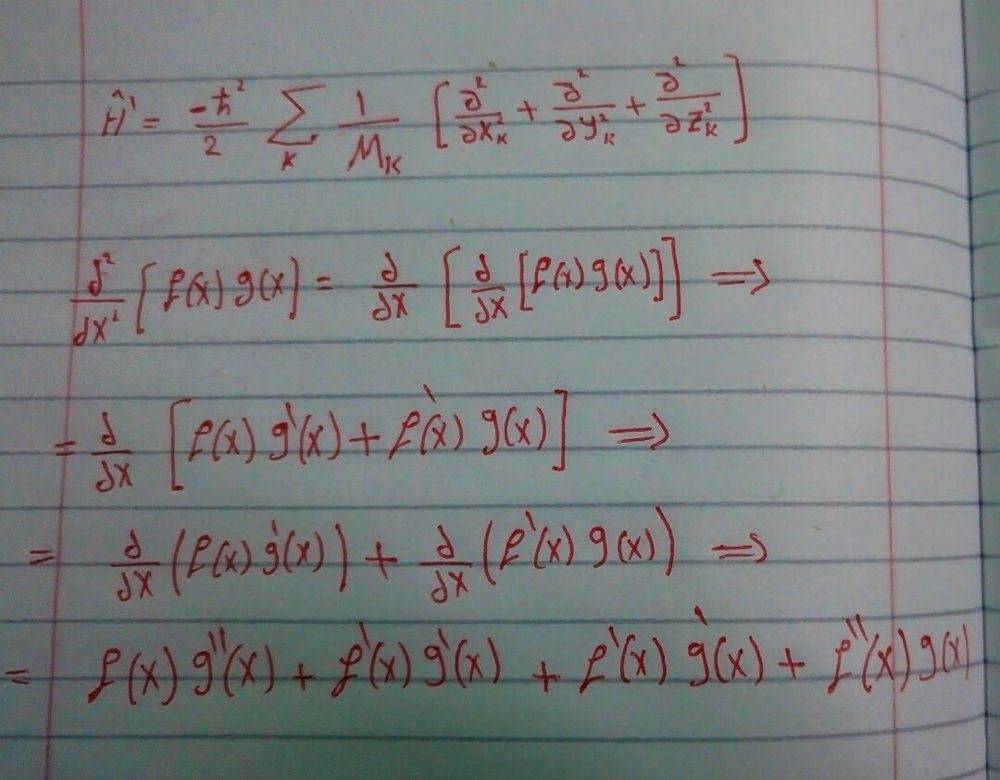 Ĥ' = -ħ²/2 Σ_K 1/M_K [∂²/∂x_K² + ∂²/∂y_K² + ∂²/∂z_K²]
d²/dx² [f(x) g(x)] = d/dx [d/dx [f(x) g(x)]] ⇒
= d/dx [f(x) g'(x) + f'(x) g(x)] ⇒
= d/dx (f(x) g'(x)) + d/dx (f'(x) g(x)) ⇒
= f(x) g''(x) + f'(x) g'(x) + f'(x) g'(x) + f''(x) g(x)